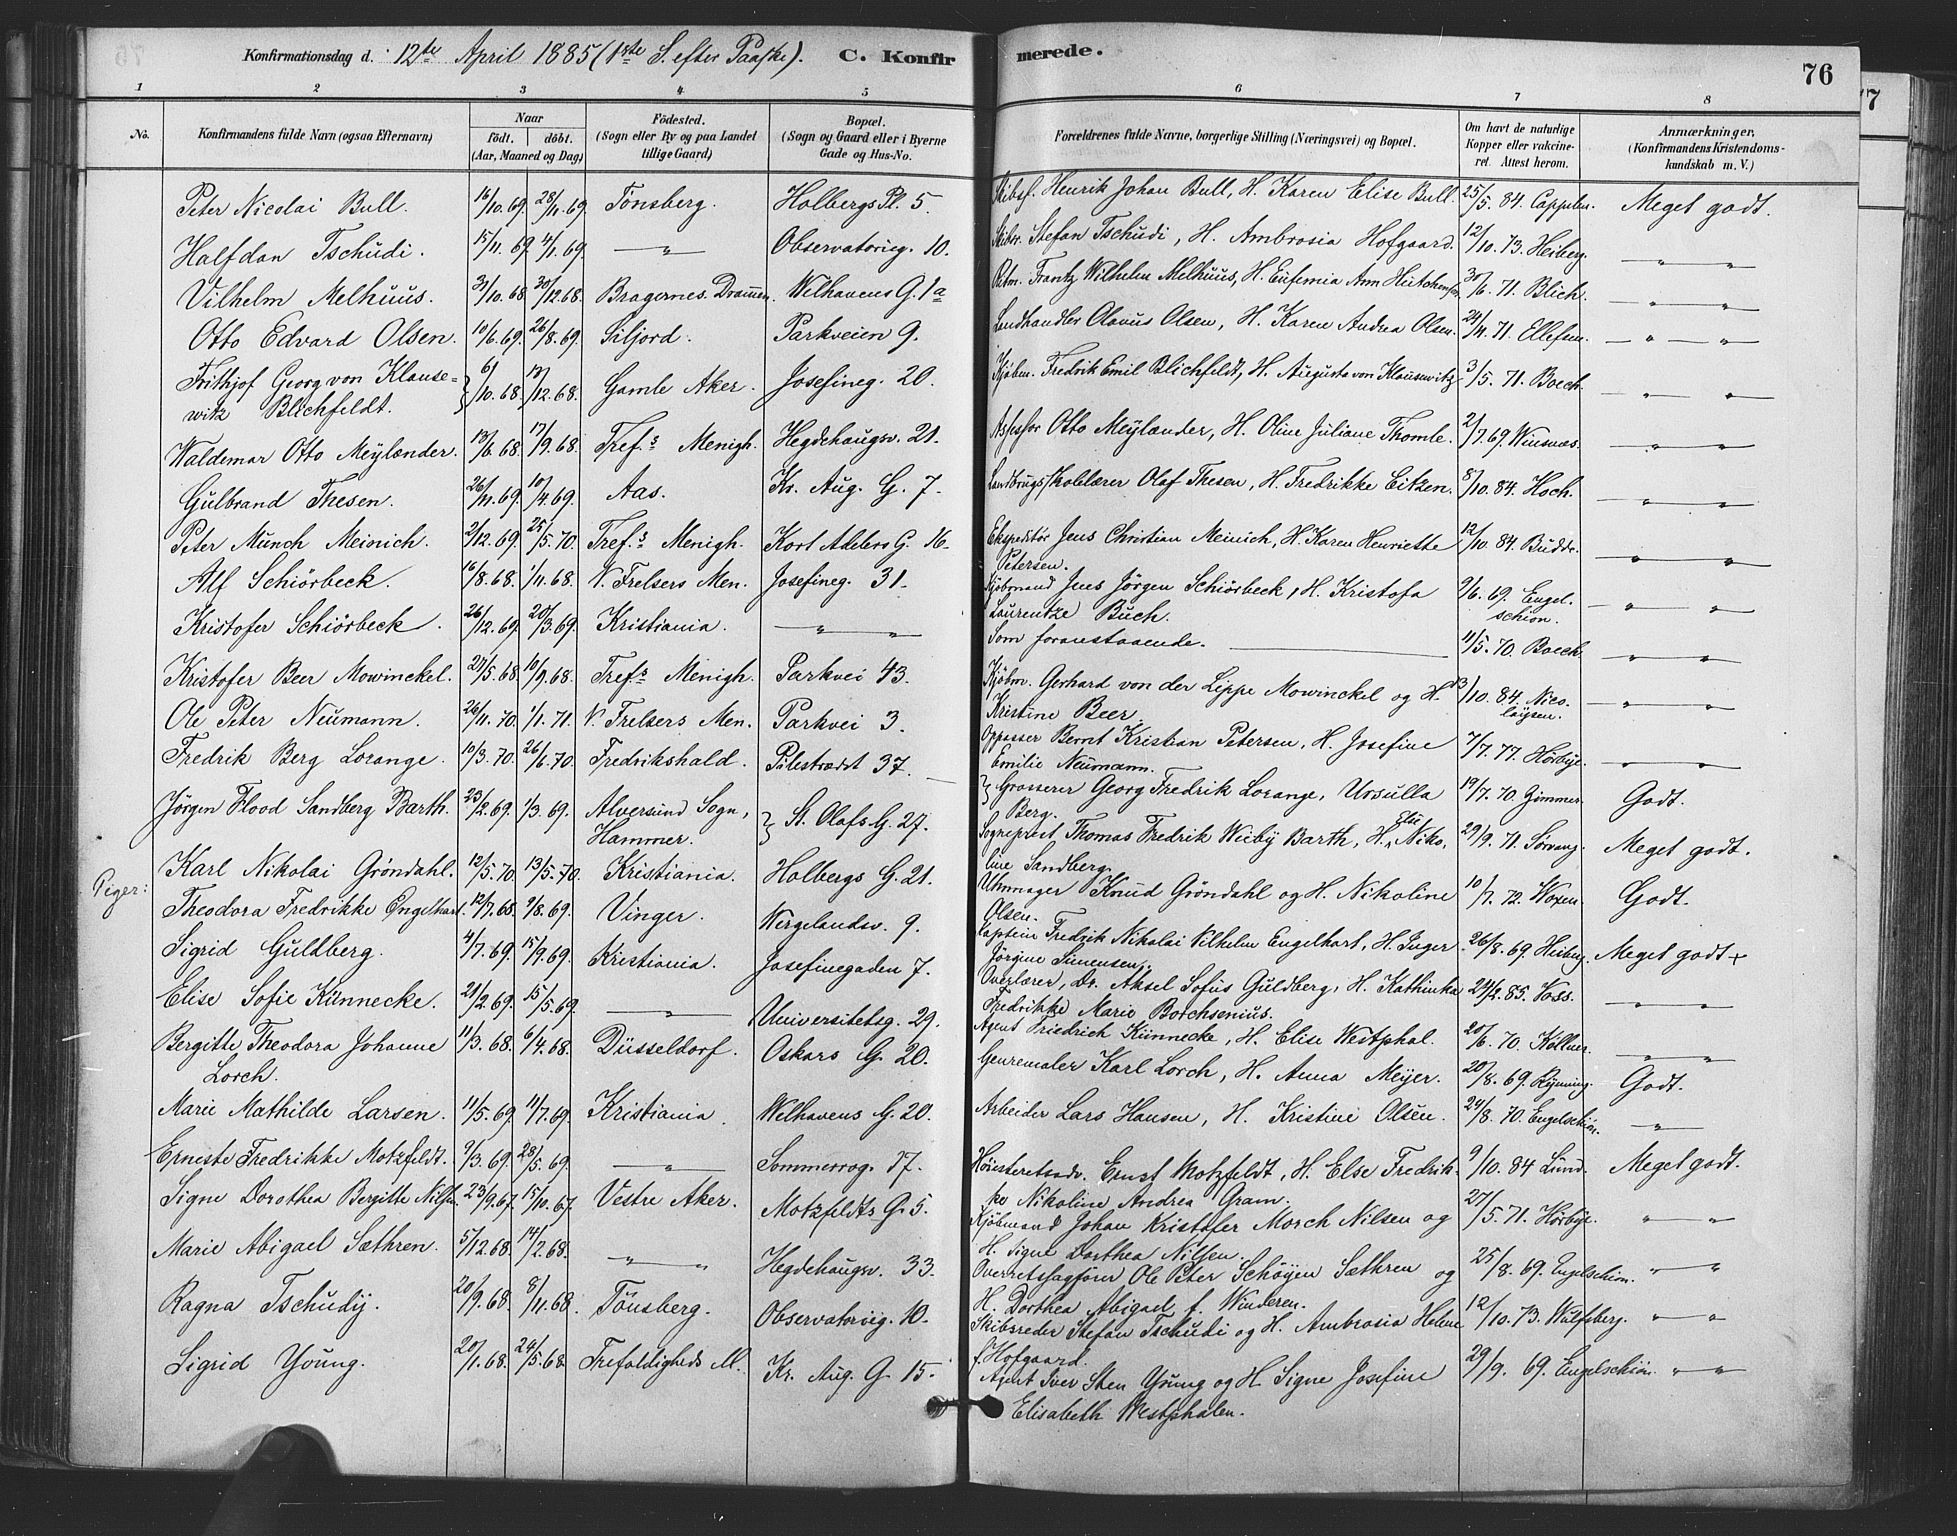 Konfirmationsdag d. 12te April 1885 (1ste S. efter Paaske). C. Konfirmerede. 76
77
1 2 3 4 5 6 7 8
No. | Konfirmandens fulde Navn (ogsaa Efternavn) | Naar født. døbt. (Aar, Maaned og Dag) | Fødested. (Sogn eller By og paa Landet tillige Gaard) | Bopæl. (Sogn og Gaard eller i Byerne Gade og Hus-No.) | Forældrenes fulde Navne, borgerlige Stilling (Næringsvei) og Bopæl. | Om havt de naturlige Kopper eller vakcineret. Attest herom. | Anmærkninger, (Konfirmandens Kristendomskundskab m. V.)
Peter Nicolai Bull. 16/10.69. 28/11.69. Tönsberg. Holbergs Pl. 5. Skibsf. Henrik Johan Bull, H. Karen Elise Bull. 25/5.84. Cappelen. Meget godt.
Halfdan Tschudi. 15/11.69. 4/1.69. — „ — Observatorieg. 10. Skibsr. Stefan Tschudi, H. Ambrosia Hofgaard. 12/10.73. Heiberg. — „ — „ —
Vilhelm Melhuus. 31/10.68. 30/12.68. Bragernes. Drammen. Welhavens G. 1a Ritm. Frantz Wilhelm Melhuus, H. Eufemia Ann Hutchenson 30/6.71. Blich. — „ — „ —
Otto Edvard Olsen. 10/6.69. 26/8.69. Siljord. Parkveien 9. Landhandler Olavus Olsen, H. Karen Andrea Olsen. 24/4.71. Ellefsen. — „ — „ —
Frithjof Georg von Klause-
witz Blichfeldt. 6/10.68. 13/12.68. Gamle Aker. Josefineg. 20. Kjøbm. Fredrik Emil Blichfeldt, H. Augusta von Klausewitz 3/5.71. Boeck. — „ — „ —
Waldemar Otto Meÿlænder. 13/6.68. 17/9.68. Tref.s Menigh. Hegdehaugsv. 21. Assessor Otto Meÿlænder, H. Oline Juliane Thomle. 2/7.69. Winsnæs. „ — „ —
Gulbrand Thesen. 26/11.69. 10/4.69. Aas. Kr. Aug. G. 7. Landbrugsskolelærer Olaf Thesen, H. Fredrikke Eitzen. 8/10.84. Hoch. — „ — „ —
Peter Munch Meinich. 2/12.69. 25/5.70. Tref.s Menigh. Kort Adelers G. 16. Ekspeditör Jens Christian Meinich, H. Karen Henriette
Petersen. 12/10.84. Budde. — „ — „ —
Alf Schiörbeck. 16/8.68. 1/11.68. V. Frelsers Men. Josefineg. 31. Kjøbmand Jens Jörgen Schiörbeck, H. Kristofa
Laurentze Buch. 9/6.69. Engelschiön. — „ — „ —
Kristofer Schiörbeck. 26/12.69. 20/3.69. Kristiania. — „ — „ Som foranstaaende. 11/5.70. Boeck. „ — „ —
Kristofer Beer Mowinckel. 27/5.68. 10/9.68. Tref.s Menigh. Parkvei 43. Kjöbm. Gerhard von der Lippe Mowinckel og H.
Kristine Beer. 13/10.84. Nicolaÿsen. — „ — „ —
Ole Peter Neumann. 26/11.70. 1/1.71. V. Frelsers Men. Parkvei 3. Oppasser Bernt Kristian Petersen, H. Josefine
Emilie Neumann. 7/7.77. Hörbÿe. — „ — „ —
Fredrik Berg Lorange. 10/3.70. 26/6.70. Fredrikshald. Pilestrædet 37. Grosserer Georg Fredrik Lorange, Ursulla
Berg. 19/7.70. Zimmer. Godt.
Jörgen Flood Sandberg Barth. 23/2.69. 1/3.69. Alversund Sogn,
Hammer. St. Olafs G. 27. Sogneprest Thomas Fredrik Weibÿ Barth, H. Else Niko-
line Sandberg. 29/9.71. Sörvang. Meget godt.
Karl Nikolai Gröndahl. 12/5.70. 13/5.70. Kristiania. Holbergs G. 21. Uhrmager Knud Gröndahl og H. Nikoline
Olsen. 10/7.72. Woxen. Godt.
Piger:
Theodora Fredrikke Engelhart. 12/7.68. 9/8.69. Vinger. Wergelandsv. 9. Captein Fredrik Nikolai Vilhelm Engelhart, H. Inger
Jörgine Simensen. 26/8.69. Heiberg. Meget godt +
Sigrid Guldberg. 4/7.69. 15/9.69. Kristiania. Josefinegaden 7. Overlærer, Dr. Aksel Sofus Guldberg, H. Kathinka
Fredrikke Marie Borchsenius. 24/2.85. Voss. „ — „
Elise Sofie Künnecke. 21/2.69. 15/5.69. — „ — Universitetsg. 29. Agent Friedrich Künnecke, H. Elise Westphal. 20/6.70. Kollner. „ — „
Bergitte Theodora Johanne
Lorch. 11/3.68. 6/4.68. Düsseldorf. Oskars G. 20. Genremaler Karl Lorch, H. Anna Meÿer. 20/8.69. Rÿnning. Godt.
Marie Mathilde Larsen. 11/5.69. 11/7.69. Kristiania. Welhavens G. 20. Arbeider Lars Hansen, H. Kristine Olsen. 24/8.70. Engelschiön. — „ —
Erneste Fredrikke Motzfeldt. 9/3.69. 28/5.69. — „ — Sommerrog. 17. Höiesteretsadv. Ernst Motzfeldt, H. Else Fredrik-
ke Nikoline Andrea Gram. 9/10.84 Lund. Meget godt.
Signe Dorothea Bergitte Nilsen. 23/9.67. 15/10.67. Vestre Aker. Motzfeldts G. 5. Kjöbmand Johan Kristofer Morch Nilsen og
H. Signe Dorthea Nilsen. 27/5.71. Hörbÿe. „ — „
Marie Abigael Sæthren. 5/12.68. 14/2.68. — „ — „ Hegdehaugsv. 33. Overretssagförer Ole Peter Schöÿen Sæthren og
H. Dorthea Abigael f. Winderen. 25/8.69. Engelschion. „ — „
Ragna Tschudÿ. 20/9.68. 8/11.68. Tönsberg. Observatoriig. 10. Skibsreder Stefan Tschudi og H. Ambrosia Helene
f. Hofgaard. 12/10.73. Wulfsberg. „ — „
Sigrid Young. 20/1.68. 24/5.68. Trefoldigheds M. Kr. Aug. G. 15. Agent Iver Sten Young og H. Signe Josefine
Elisabeth Westphalen. 29/9.69. Engelschiön. „ — „